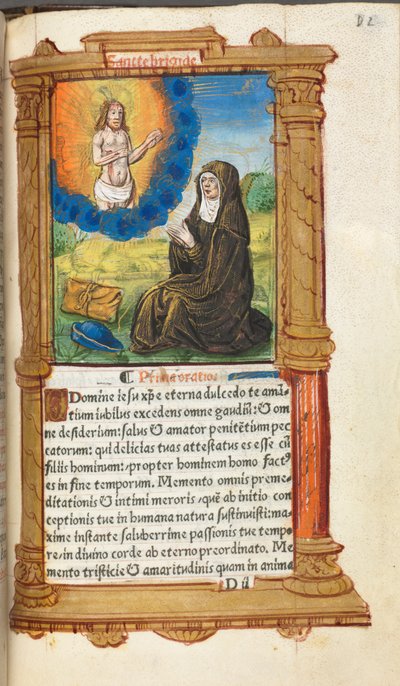 D 2
Sancte brigide
¶ Prima oratio
O Domine iesu xp̃e eterna dulcedo te amã
tium iubilus excedens omne gaudiũ: & om
ne desiderium: salus & amator penitẽtium pec
catorum: qui delicias tuas attestatus es esse cũ
filiis hominum: propter hominem homo fact⁹
es in fine temporum. Memento omnis preme
ditationis & intimi meroris, quẽ ab initio con
ceptionis tue in humana natura sustinuisti: ma
xime instante saluberrime passionis tue tempo
re, in diuino corde ab eterno preordinato. Me
mento tristicie & amaritudinis quam in anima
D ii